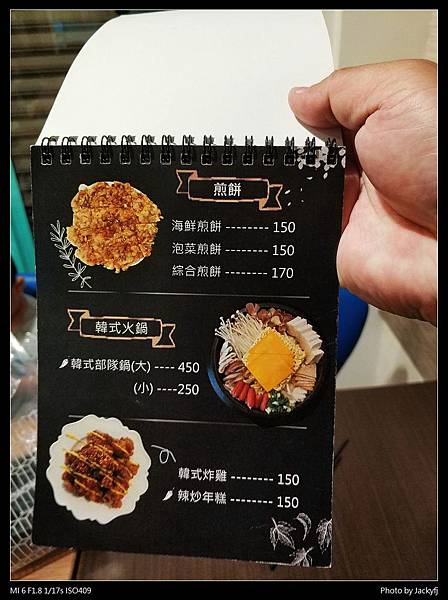 煎餅
海鮮煎餅 -------- 150
泡菜煎餅 -------- 150
綜合煎餅 -------- 170
韓式火鍋
韓式部隊鍋(大) ---- 450
(小) ----250
韓式炸雞 -------- 150
辣炒年糕 -------- 150
MI 6 F1.8 1/17s ISO409
Photo by Jackyfj